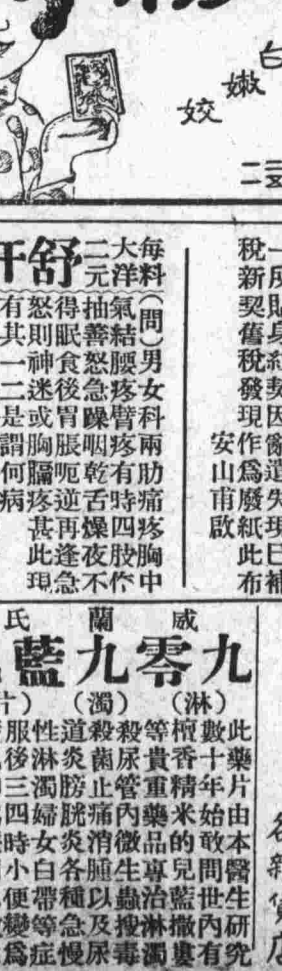 白
嫩
姣
一
税新契舊税發現作為廢紙此布
安山甫啟
舒
每料
大洋
二元
(問)男女科兩肋痛疼胸中
氣結腰疼臂疼有時四肢作
抽善怒急躁咽乾舌燥夜不
得眠食後胃脹呃逆再逢急
怒則神迷或胸膈疼甚此現
有其一二是謂何病
威蘭氏
九零九藍
(淋)(濁)
此藥片由本醫生研究
數十年始敢問世內有
檀香精米的兒藍撒婁
等貴重藥品專治淋濁
殺尿管內微生蟲搜毒
殺菌止痛消腫以及尿
道炎膀胱炎各種急慢
性淋濁婦女白帶等症
服後三四時小便變為